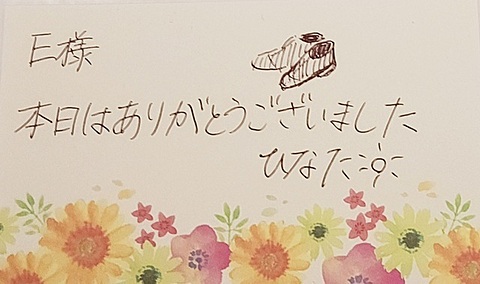 E様
本日はありがとうございました
ひなた